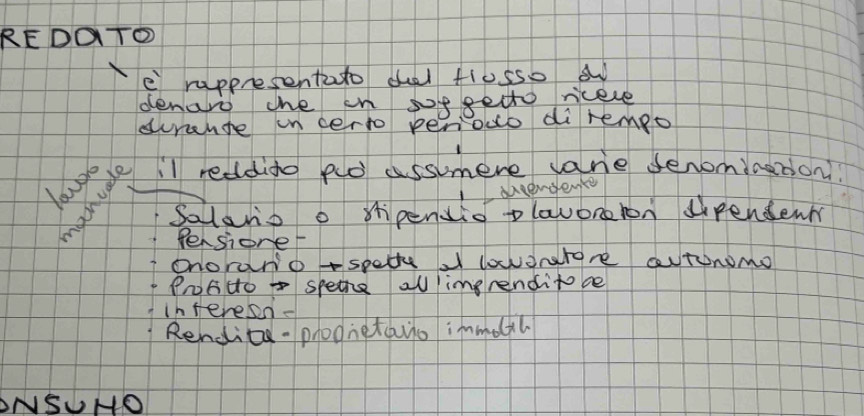 REDDITO
è rappresentato dal flusso di
denaro che un soggetto riceve
durante un certo periodo di tempo
il reddito può assumere varie denominazioni:
lavoro
manuale
dipendente
· Salario o stipendio → lavoratori dipendenti
· Pensione -
· Onorario → spetta al lavoratore autonomo
· Profitto → spetta all'imprenditore
· Interessi -
· Rendita - proprietario immobili
ONSUMO